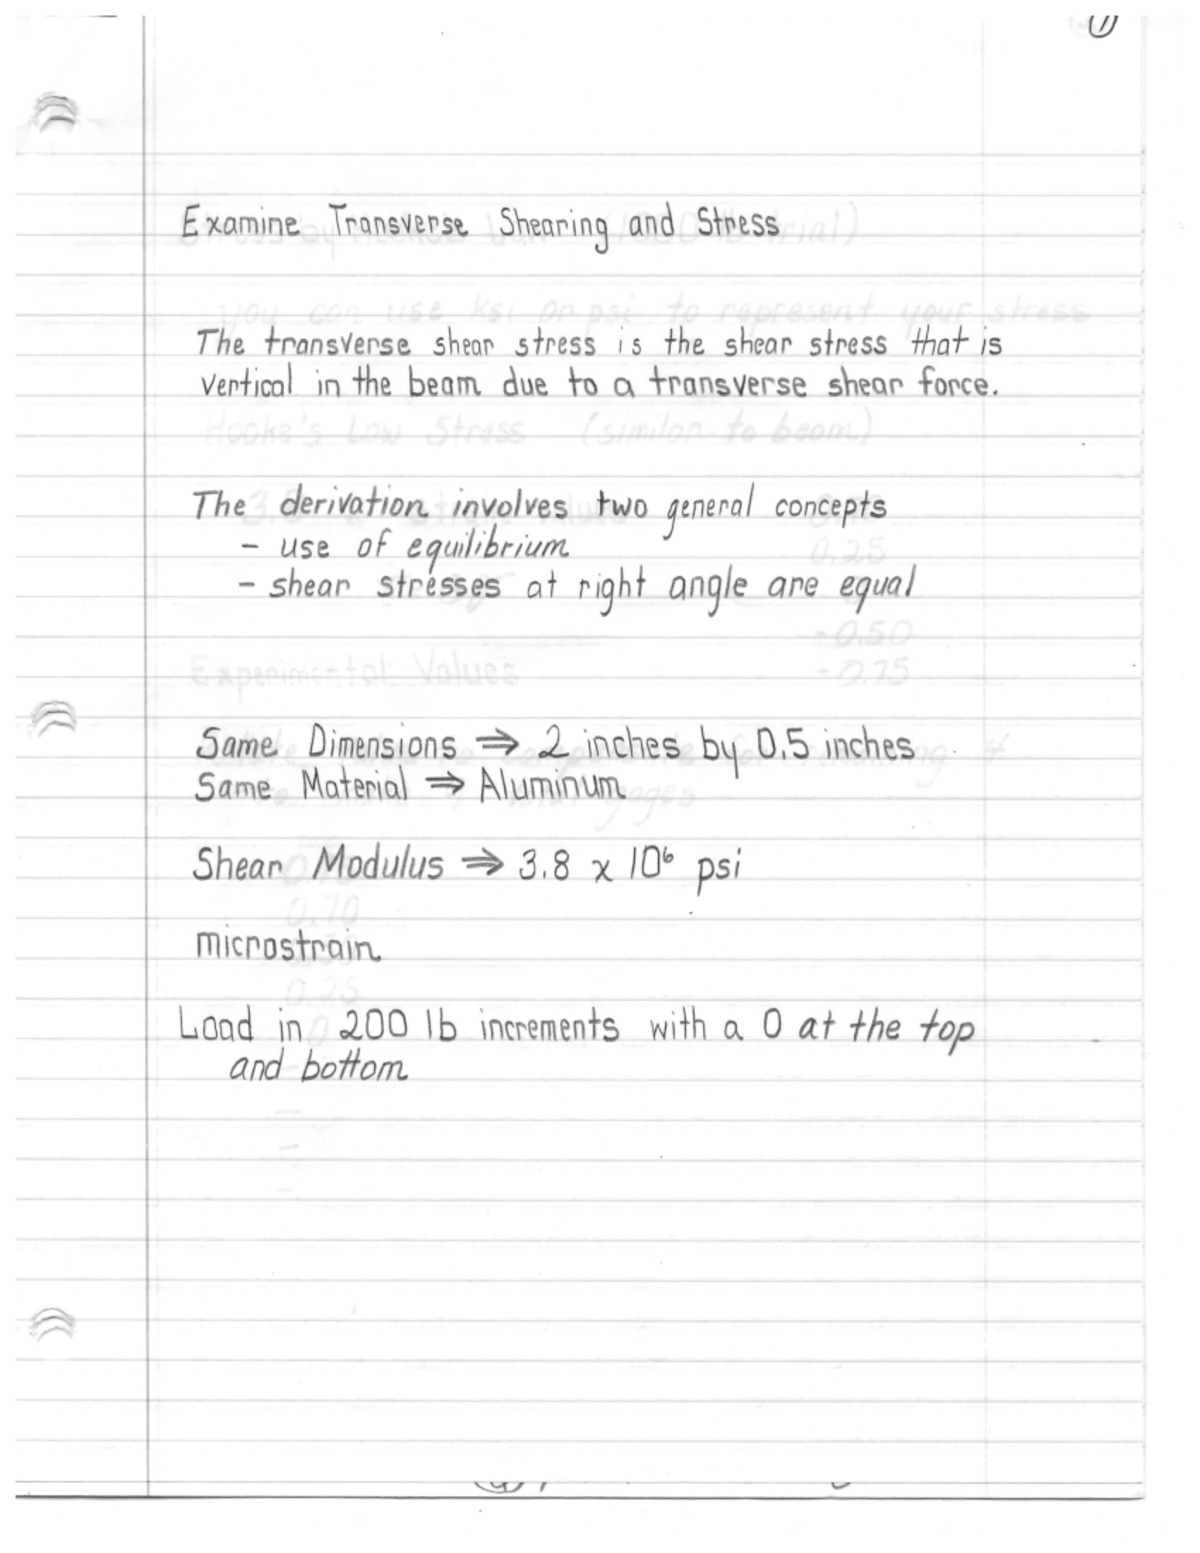 1
Examine Transverse Shearing and Stress
The transverse shear stress is the shear stress that is
vertical in the beam due to a transverse shear force.
The derivation involves two general concepts
- use of equilibrium
- shear stresses at right angle are equal
Same Dimensions ⇒ 2 inches by 0.5 inches
Same Material ⇒ Aluminum
Shear Modulus ⇒ 3.8 x 10⁶ psi
microstrain
Load in 200 lb increments with a 0 at the top
and bottom